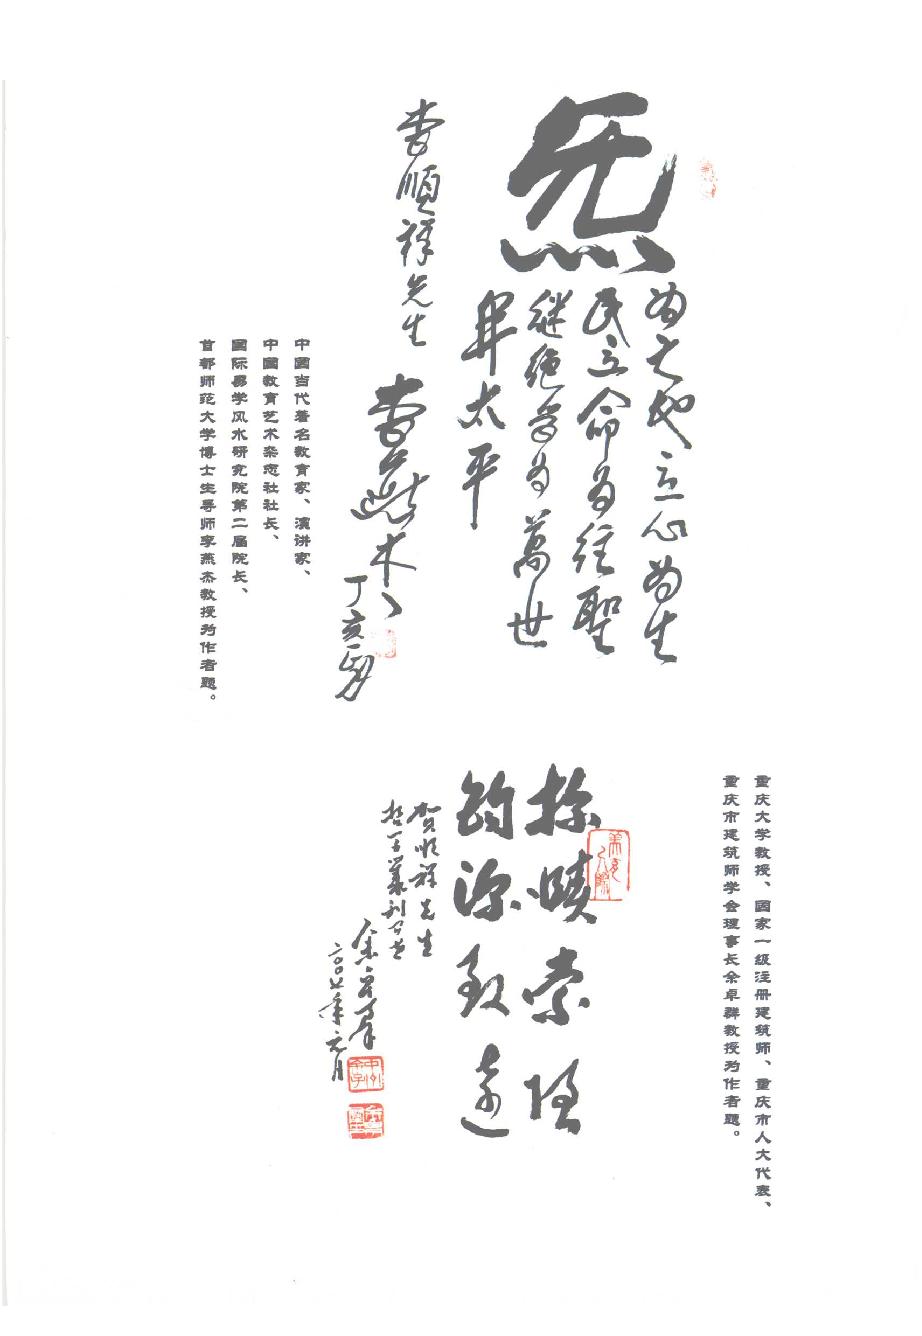 炁
为天地立心为生
民立命为往聖
继绝学为萬世
開太平
李顺祥先生
李燕杰
丁亥夏
中国当代著名教育家、演讲家、
中国教育艺术杂志社社长、
国际易学风水研究院第二届院长、
首都师范大学博士生导师李燕杰教授为作者题。
重庆大学教授、国家一级注册建筑师、重庆市人大代表、
重庆市建筑师学会理事长余卓群教授为作者题。
探赜索隐
钩深致远
贺顺祥先生
哲王丛刊
余卓群
二00七年元月